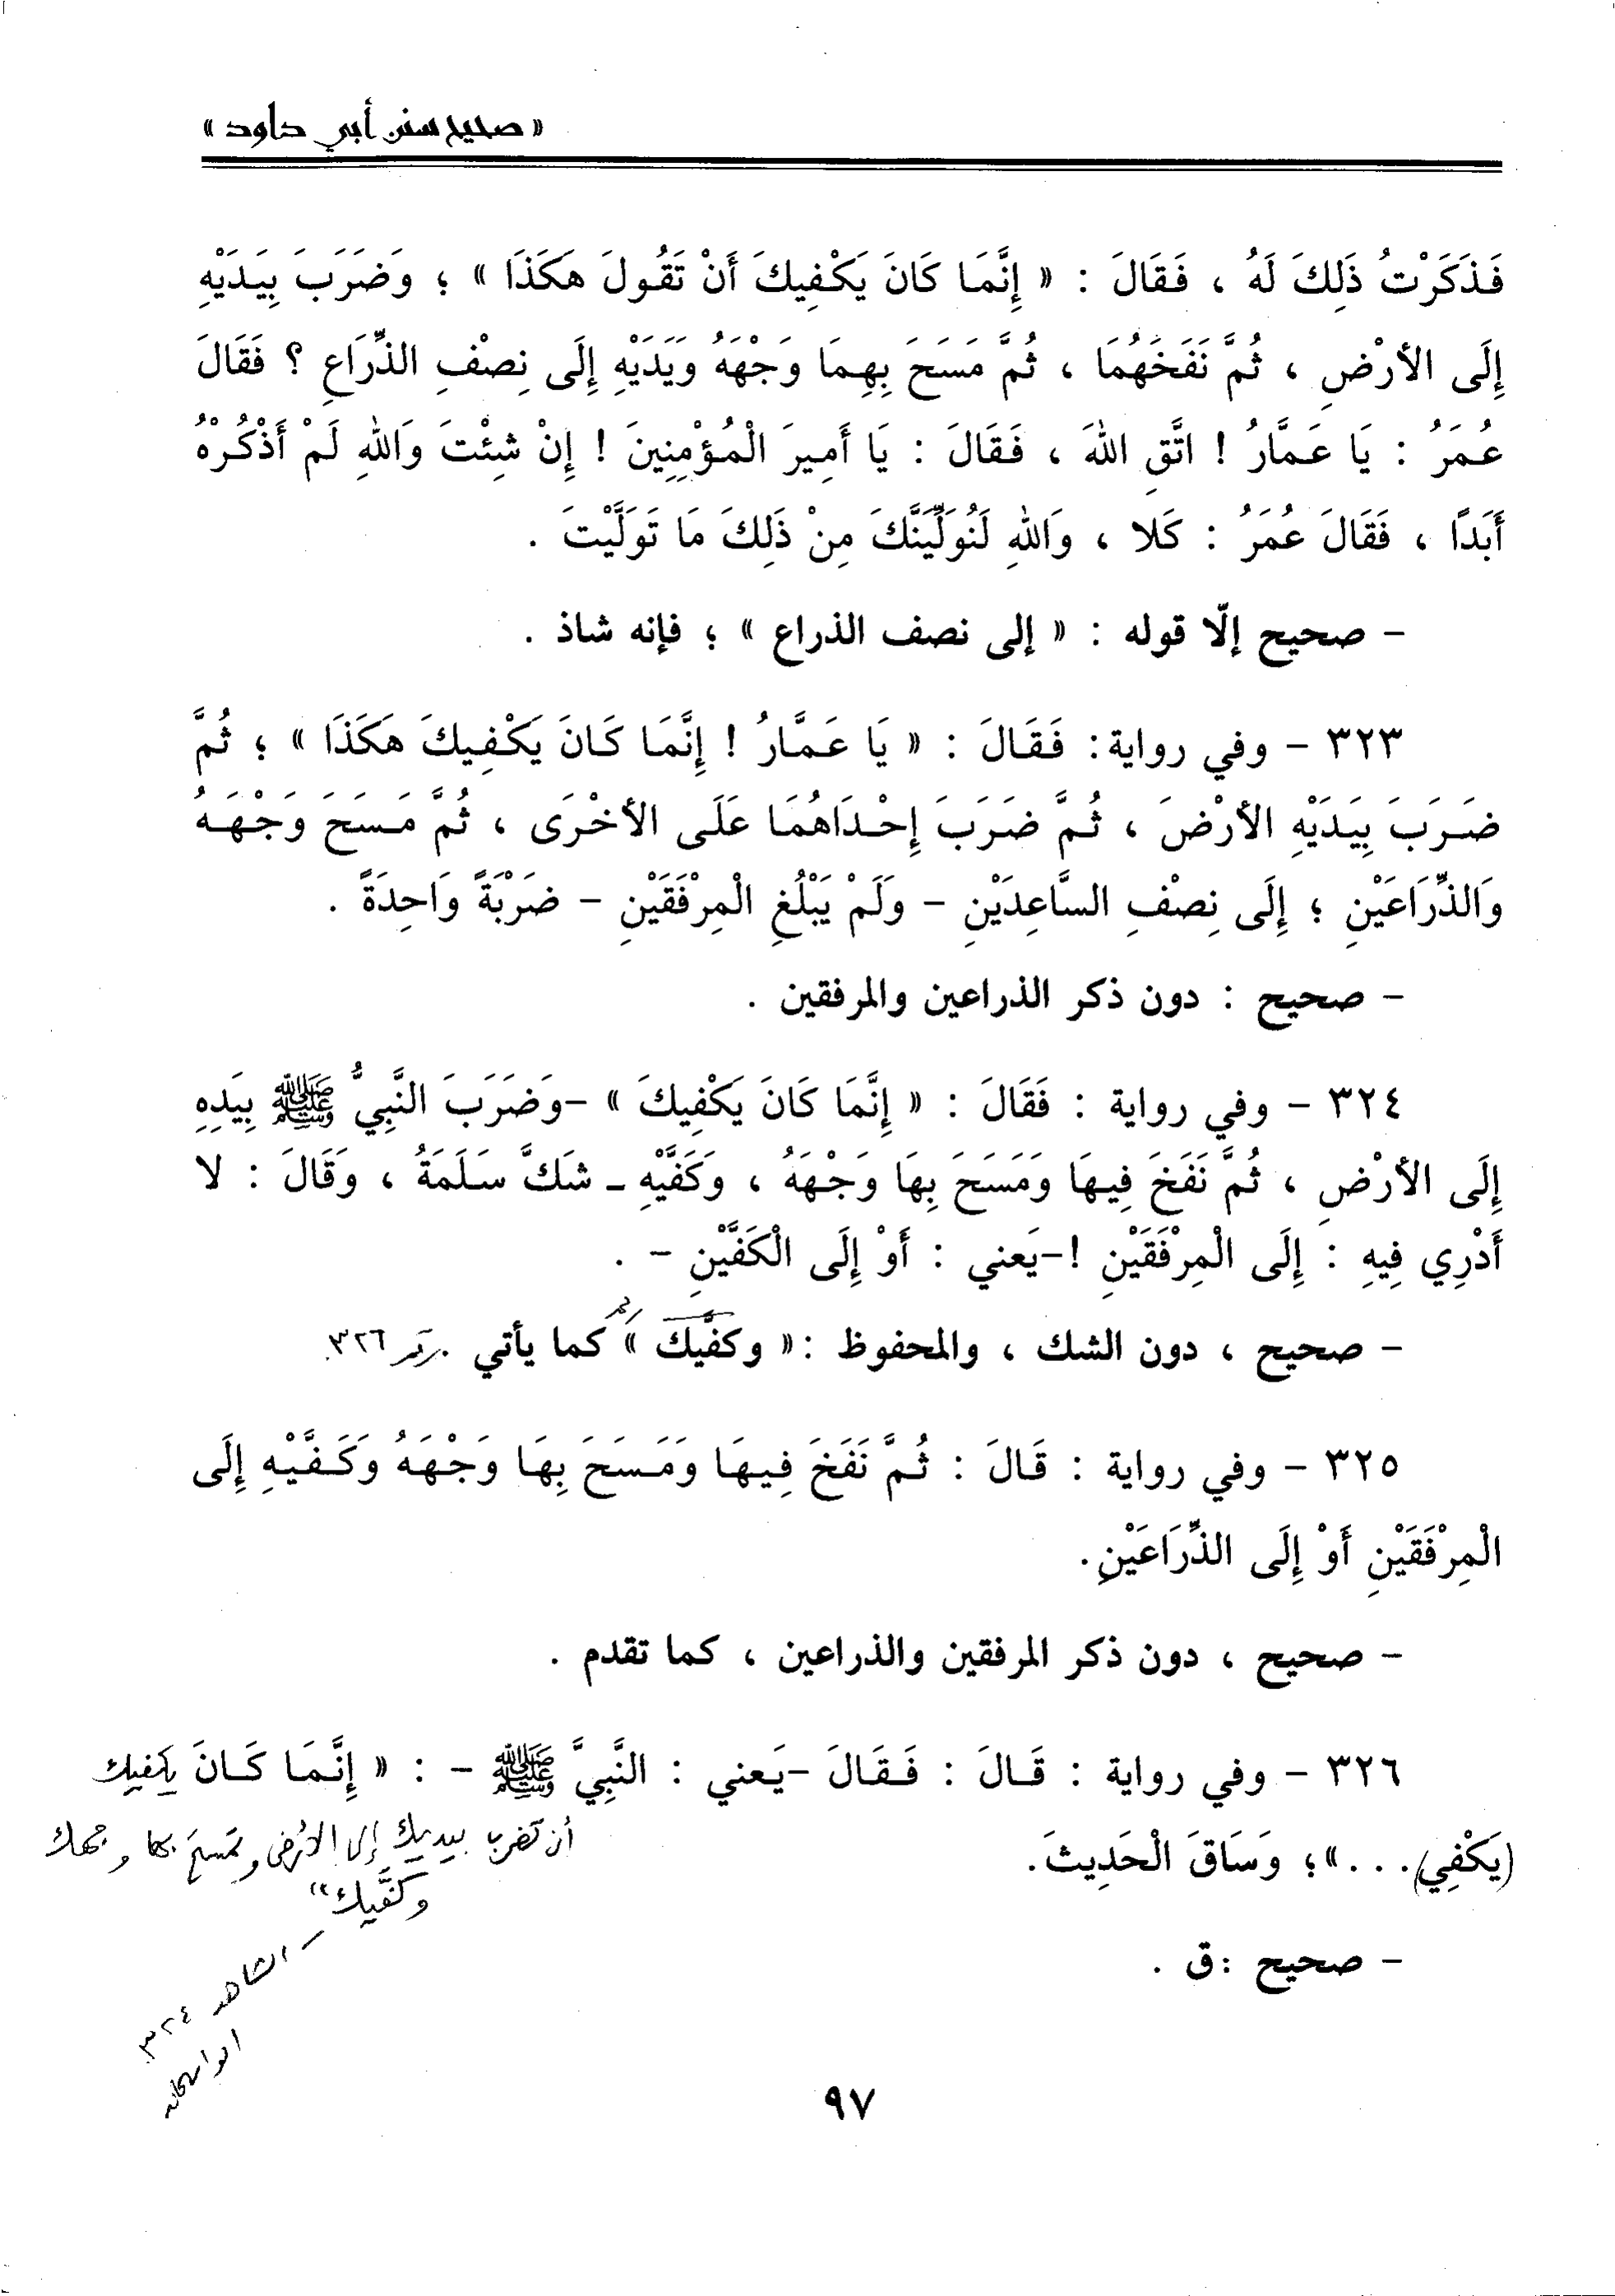 « صحيح سنن أبي داود »
فَذَكَرْتُ ذَلِكَ لَهُ ، فَقَالَ : « إِنَّمَا كَانَ يَكْفِيكَ أَنْ تَقُولَ هَكَذَا » ؛ وَضَرَبَ بِيَدَيْهِ
إِلَى الأَرْضِ ، ثُمَّ نَفَخَهُمَا ، ثُمَّ مَسَحَ بِهِمَا وَجْهَهُ وَيَدَيْهِ إِلَى نِصْفِ الذِّرَاعِ ؟ فَقَالَ
عُمَرُ : يَا عَمَّارُ ! اتَّقِ اللهَ ، فَقَالَ : يَا أَمِيرَ الْمُؤْمِنِينَ ! إِنْ شِئْتَ وَاللهِ لَمْ أَذْكُرْهُ
أَبَدًا ، فَقَالَ عُمَرُ : كَلا ، وَاللهِ لَنُوَلِّيَنَّكَ مِنْ ذَلِكَ مَا تَوَلَّيْتَ .
– صحيح إلّا قوله : « إلى نصف الذراع » ؛ فإنه شاذ .
٣٢٣ – وفي رواية : فَقَالَ : « يَا عَمَّارُ ! إِنَّمَا كَانَ يَكْفِيكَ هَكَذَا » ؛ ثُمَّ
ضَرَبَ بِيَدَيْهِ الأَرْضَ ، ثُمَّ ضَرَبَ إِحْدَاهُمَا عَلَى الأُخْرَى ، ثُمَّ مَسَحَ وَجْهَهُ
وَالذِّرَاعَيْنِ ؛ إِلَى نِصْفِ السَّاعِدَيْنِ – وَلَمْ يَبْلُغِ الْمِرْفَقَيْنِ – ضَرْبَةً وَاحِدَةً .
– صحيح : دون ذكر الذراعين والمرفقين .
٣٢٤ – وفي رواية : فَقَالَ : « إِنَّمَا كَانَ يَكْفِيكَ » –وَضَرَبَ النَّبِيُّ ﷺ بِيَدِهِ
إِلَى الأَرْضِ ، ثُمَّ نَفَخَ فِيهَا وَمَسَحَ بِهَا وَجْهَهُ ، وَكَفَّيْهِ – شَكَّ سَلَمَةُ ، وَقَالَ : لا
أَدْرِي فِيهِ : إِلَى الْمِرْفَقَيْنِ !–يَعني : أَوْ إِلَى الْكَفَّيْنِ – .
– صحيح ، دون الشك ، والمحفوظ :« وكفَّيك » كما يأتي . رقم ٣٢٦.
٣٢٥ – وفي رواية : قَالَ : ثُمَّ نَفَخَ فِيهَا وَمَسَحَ بِهَا وَجْهَهُ وَكَفَّيْهِ إِلَى
الْمِرْفَقَيْنِ أَوْ إِلَى الذِّرَاعَيْنِ .
– صحيح ، دون ذكر المرفقين والذراعين ، كما تقدم .
٣٢٦ – وفي رواية : قَالَ : فَقَالَ –يَعني : النَّبِيَّ ﷺ – : « إِنَّمَا كَانَ يكفيك
(يَكْفِي) . . . » ؛ وَسَاقَ الْحَدِيثَ .
أن تضرب بيديك إلى الأرض وتمسح بها وجهك
وكفَّيك"
– الشاهد ٣٢٤
– صحيح :ق .
٩٧